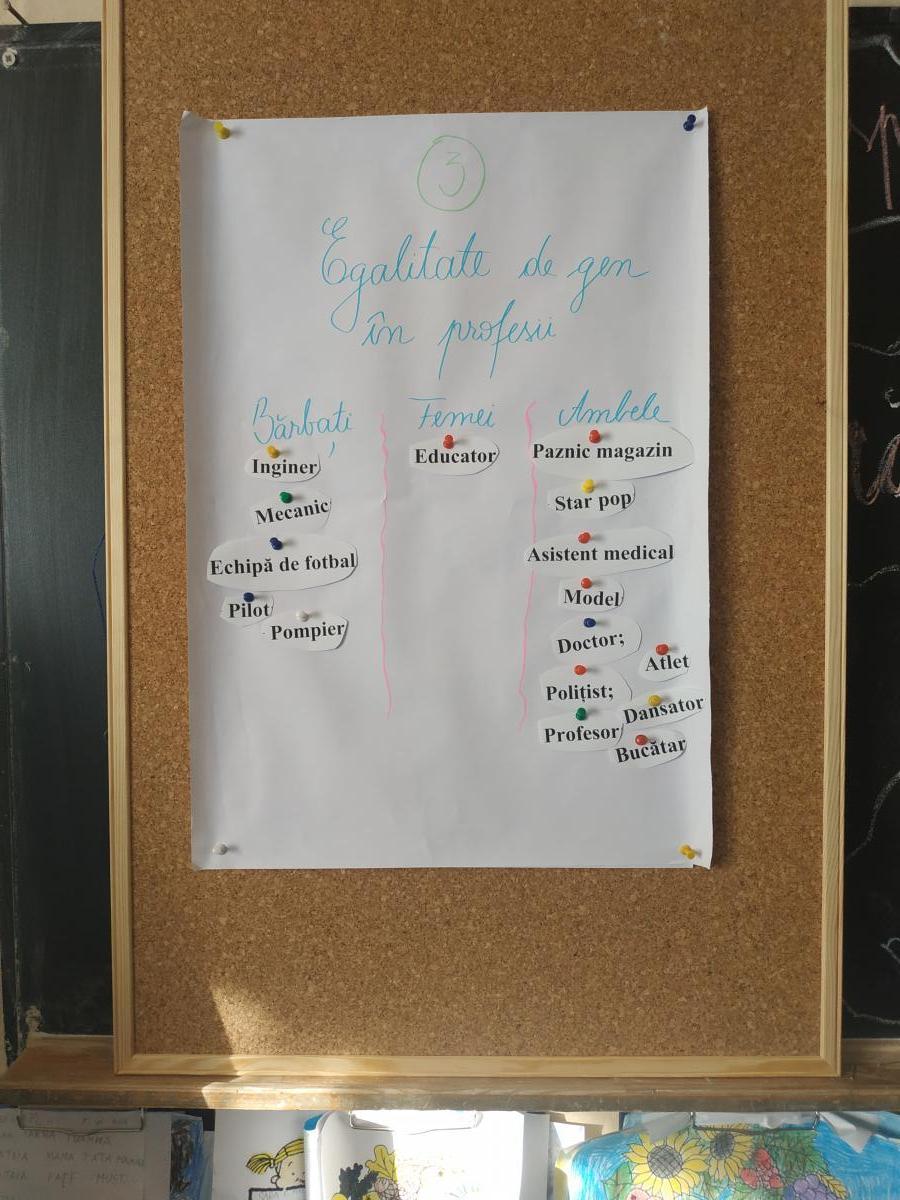 3
Egalitate de gen
în profesii
Bărbați
Inginer
Mecanic
Echipă de fotbal
Pilot
Pompier
Femei
Educator
Ambele
Paznic magazin
Star pop
Asistent medical
Model
Doctor;
Atlet
Polițist;
Dansator
Profesor
Bucătar